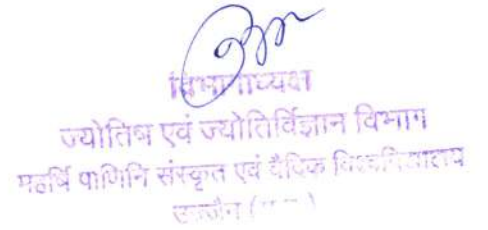 विभागाध्यक्ष
ज्योतिष एवं ज्योतिर्विज्ञान विभाग
महर्षि पाणिनि संस्कृत एवं वैदिक विश्वविद्यालय
उज्जैन (